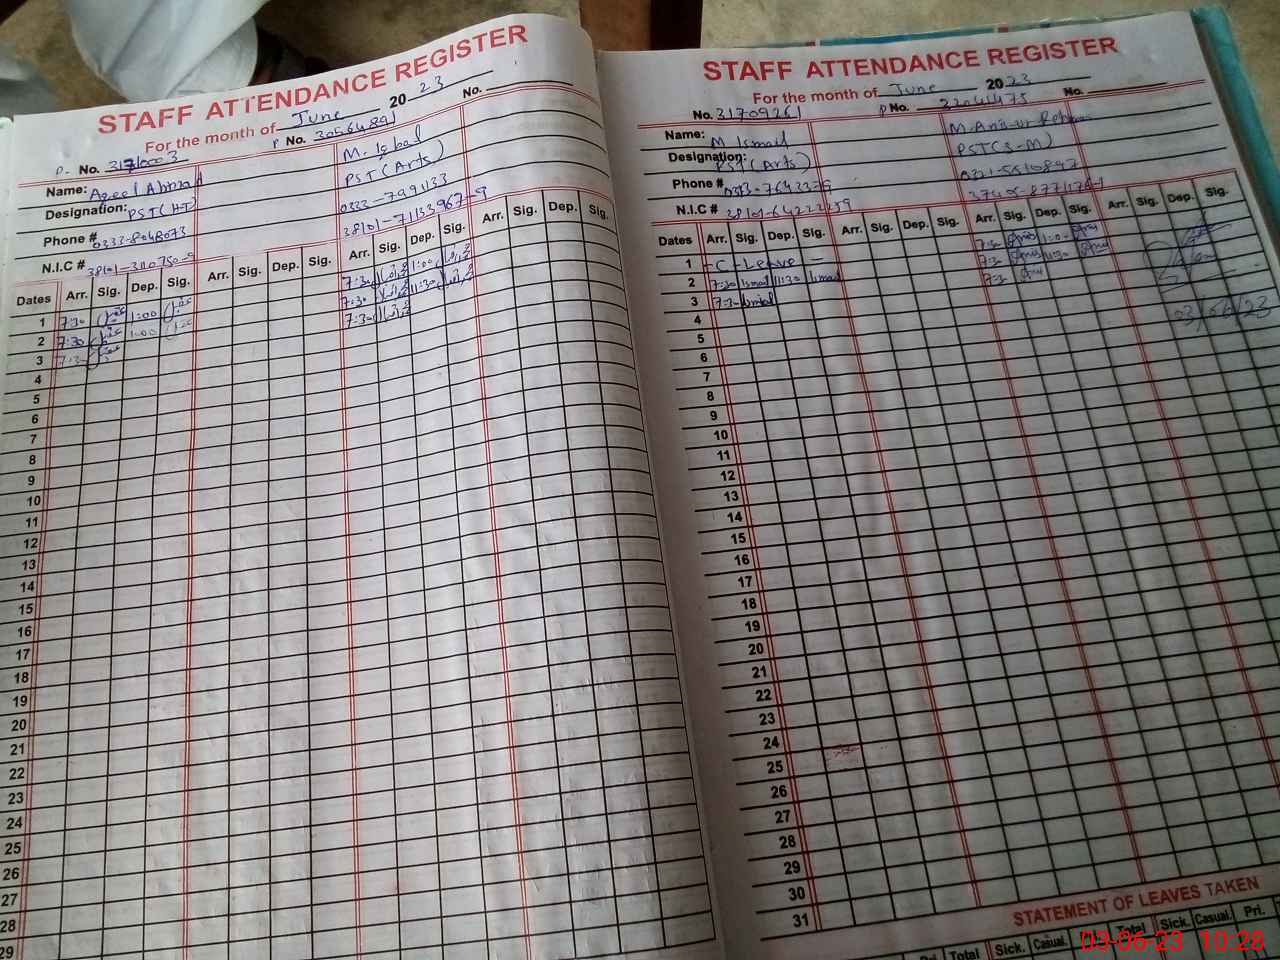 STAFF ATTENDANCE REGISTER
For the month of June 2023 No.
P. No. P No. 3056489
Name: Aqeel Ahmad M. Iqbal
Designation: PST (HT) PST (Arts)
Phone # 0333-8048073 0333-7991133
N.I.C # 38101-71133967-9
Dates Arr. Sig. Dep. Sig. Arr. Sig. Dep. Sig. Arr. Sig. Dep. Sig. Arr. Sig. Dep. Sig.
1 7:30 1:00 7:30 1:00
2 7:30 1:00 7:30 11:30
3 7:30 7:30
4
5
6
7
8
9
10
11
12
13
14
15
16
17
18
19
20
21
22
23
24
25
26
27
28
29
STAFF ATTENDANCE REGISTER
For the month of June 2023
No. 31709261 P No. 32044475 No.
Name: M Ismail M. Anis-ur-Rehman
Designation: PST (Arts) PST (S-M)
Phone # 0313-7643379
N.I.C #
Dates Arr. Sig. Dep. Sig. Arr. Sig. Dep. Sig. Arr. Sig. Dep. Sig. Arr. Sig. Dep. Sig.
1 - C - Leave - 7:30 1:00
2 7:30 Ismail 11:30 Ismail 7:30 11:30
3 7:30 Ismail 7:30 03/06/23
4
5
6
7
8
9
10
11
12
13
14
15
16
17
18
19
20
21
22
23
24
25
26
27
28
29
30
31
STATEMENT OF LEAVES TAKEN
Pri. Total Sick. Casual. Pri. Total Sick. Casual. Pri.
03-06-23 10:28